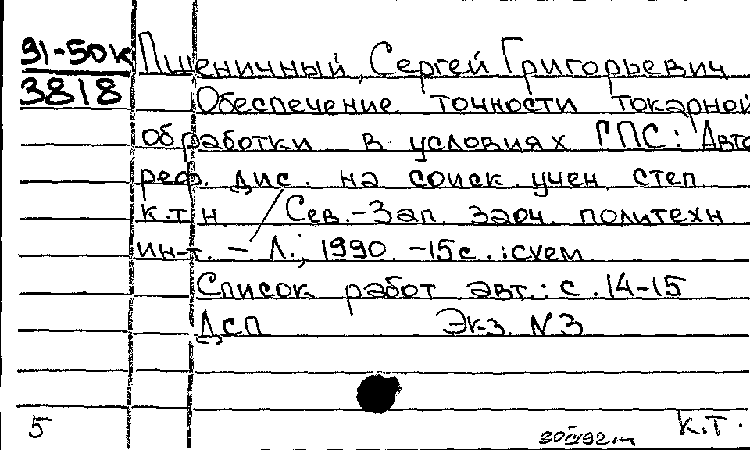 91-50к Пшеничный, Сергей Григорьевич
3818 Обеспечение точности токарной
обработки в условиях ГПС: Авто
реф. дис. на соиск. учен. степ.
к.т.н. / Сев.-Зап. заоч. политехн
ин-т. – Л., 1990. -15с.:схем
Список работ авт.: с.14-15
ДСП Экз. N3
5 к.т.